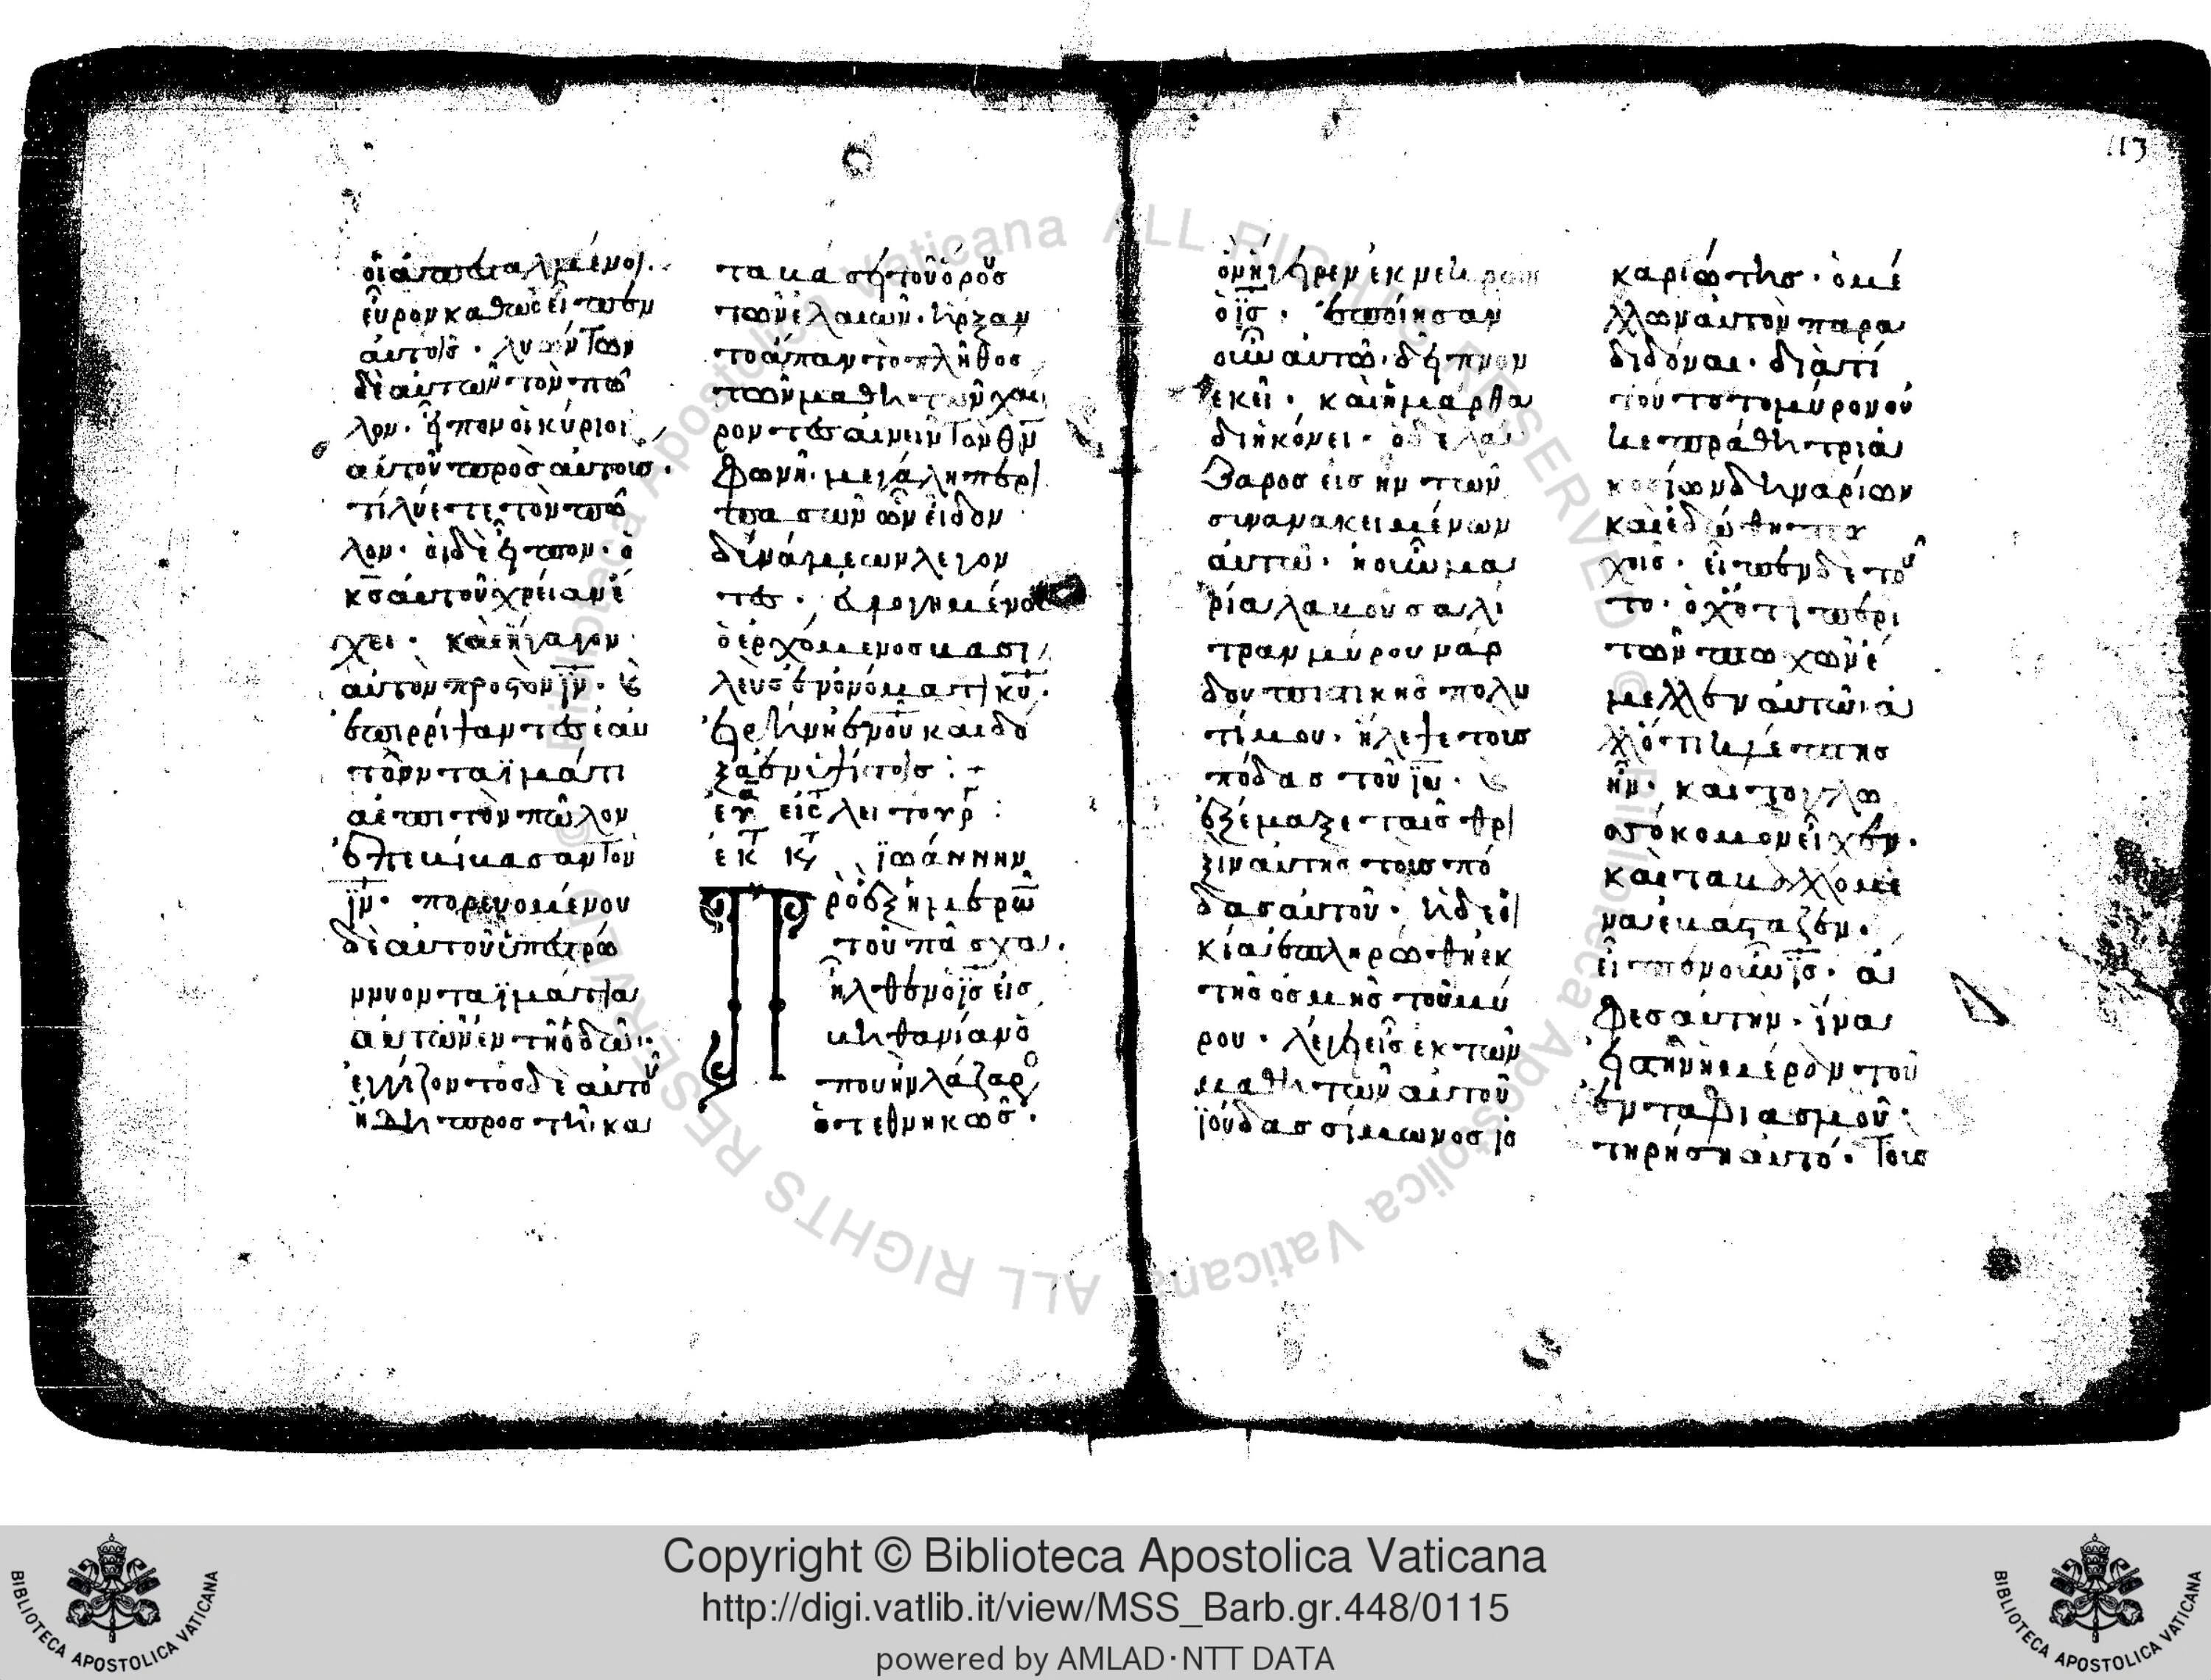 οἱ ἀπεσταλμένοι.
εὗρον καθὼς εἶπεν
αὐτοῖς · λυόντων
δὲ αὐτῶν τὸν πῶ
λον · εἶπον οἱ κύριοι
αὐτοῦ πρὸς αὐτους ·
τί λύετε τὸν πῶ
λον · οἱ δὲ εἶπον · ὁ
κ̅ς̅ αὐτοῦ χρείαν ἔ
χει · καὶ ἤγαγον
αὐτὸν πρὸς τὸν ι̅ν̅ · κ(αὶ)
ἐπιρρίψαντες ἑαυ
τῶν τα ἱμάτι
α ἐπι τὸν πῶλον
ἐπεβίβασαν τον
ι̅ν̅ · πορευομένου
δὲ αὐτοῦ ὑπεστρώ
ννυον τα ἱμάτια
αὐτῶν ἐν τῇ ὁδῶ ·
ἐγγίζοντος δὲ αὐτοῦ
ἤδη προς τῆ κα
ταβάσει τοῦ ὄρους
τῶν ἐλαιῶν · ἤρξαν
το ἅπαν τὸ πλῆθος
τῶν μαθητῶν χαί
ροντες αἰνεῖν τον θ̅ν̅
φωνῆ μεγάλη περὶ
πασῶν ὧν εἶδον
δυνάμεων λεγον
τες · εὐλογημένος
ὁ ἐρχόμενος βασι
λεὺς ἐν ὀνόματι κ̅υ̅ ·
εἰρήνη ἐν ο̅υ̅ν̅ω̅ καὶ δό
ξα ἐν ὑψίστοις : +
εὐα εἰς λειτουρ :
ἐκ τ κτ ἰωάννην
Πρὸ ἓξ ἡμερῶν
τοῦ πάσχα ·
ἦλθεν ὁ ι̅ς̅ εἰς
βηθανίαν ὅ
που ἦν λάζαρος
ὁ τεθνηκώς ·
113
ὃν ἤγειρεν ἐκ νεκρων
ὁ ι̅ς̅ · ἐποίησαν
οὖν αὐτῶ · δεῖπνον
ἐκεῖ · καὶ ἡ μαρθα
διηκόνει · ὁ δὲ λά
ζαρος εἷς ἦν τῶν
συνανακειμένων
αὐτῶ · ἡ οὖν μα
ρία λαβοῦσα λί
τραν μύρου νάρ
δου πιστικῆς πολυ
τίμου · ἤλειψε τους
πόδας τοῦ ι̅υ̅ · κ(αὶ)
ἐξέμαξε ταῖς θρι
ξὶν αὐτῆς τους πό
δας αὐτοῦ · ἡ δὲ οἰ
κία ἐπληρώθη ἐκ
τῆς ὀσμῆς τοῦ μύ
ρου · λέγει εἷς ἐκ τῶν
μαθητῶν αὐτοῦ
ἰούδας σίμωνος ἰσ
καριώτης · ὁ μέ
λλων αὐτὸν παρα
διδόναι · διὰ τί
τοῦτο το μύρον οὐ
κ ἐπράθη τρια
κοσίων δηναρίων
καὶ ἐδόθη πτω
χοῖς · εἶπεν δὲ τοῦ
το · οὐχ ὅτι περὶ
τῶν πτωχῶν ἔ
μελλεν αὐτῶ · ἀ
λλ ὅτι κλέπτης
ἦν · καὶ το γλω
σσόκομον εἶχεν ·
καὶ τα βαλλόμε
να ἐβάσταζεν ·
εἶπεν οὖν ὁ ι̅ς̅ · ἄ
φες αὐτὴν · ἵνα
εἰς τὴν ἡμέραν τοῦ
ἐνταφιασμοῦ
τηρήση αὐτό · τους
Copyright © Biblioteca Apostolica Vaticana
http://digi.vatlib.it/view/MSS_Barb.gr.448/0115
powered by AMLAD·NTT DATA